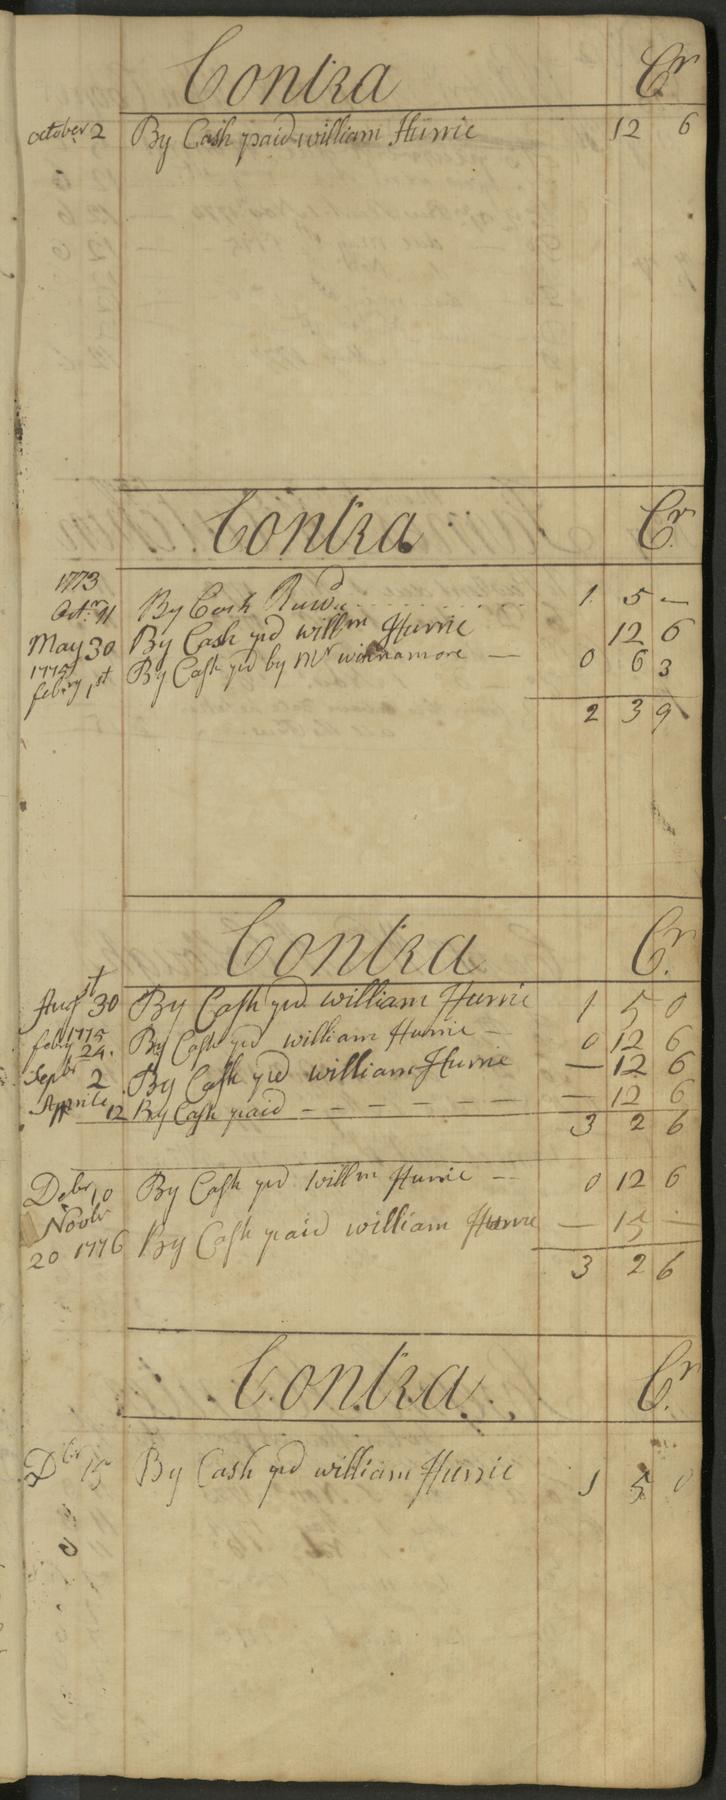 Contra Cr
october 2 By Cash paid william Hurrie 12 6
Contra Cr
1773
Octr 11 By Cash Recd 1 5 —
May 30 By Cash pd willm Hurrie 12 6
1775 febry 1st By Cash pd by Mr winnamore — 0 6 3
2 3 9
Contra Cr.
Augst 30 By Cash pd william Hurrie 1 5 0
feby 1775 24. By Cash pd william Hurrie — 0 12 6
Sepbr 2 By Cash pd william Hurrie — 12 6
Aprile 12 By Cash paid — — — — — — — 12 6
3 2 6
Debr 10 By Cash pd Willm Hurrie — 0 12 6
Novbr
20 1776 By Cash paid william Hurrie — 15 —
3 2 6
Contra Cr.
Dbr 15 By Cash pd william Hurrie 1 5 0